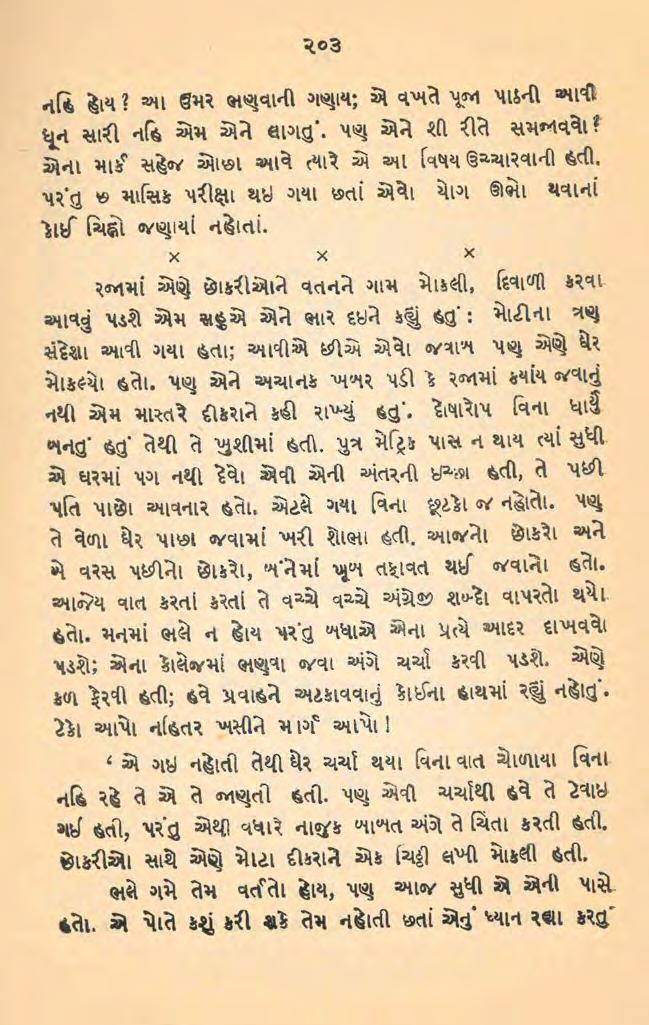 ૨૦૩
નહિ હોય? આ ઉમર ભણવાની ગણાય; એ વખતે પૂજા પાઠની આવી
ધૂન સારી નહિ એમ એને લાગતું. પણ એને શી રીતે સમજાવવો?
એના માર્ક સહેજ ઓછા આવે ત્યારે એ આ વિષય ઉચ્ચારવાની હતી.
પરંતુ છ માસિક પરીક્ષા થઇ ગયા છતાં એવો યોગ ઊભો થવાનાં
કોઈ ચિહ્નો જણાયાં નહોતાં.
× × ×
રજામાં એણે છોકરીઓને વતનને ગામ મોકલી, દિવાળી કરવા
આવવું પડશે એમ સહુએ એને ભાર દઇને કહ્યું હતું: મોટીના ત્રણ
સંદેશા આવી ગયા હતા; આવીએ છીએ એવો જવાબ પણ એણે ઘેર
મોકલ્યો હતો. પણ એને અચાનક ખબર પડી કે રજામાં કયાંય જવાનું
નથી એમ માસ્તરે દીકરાને કહી રાખ્યું હતું. દોષારોપ વિના ધાર્યું
બનતું હતું તેથી તે ખુશીમાં હતી. પુત્ર મેટ્રિક પાસ ન થાય ત્યાં સુધી
એ ઘરમાં પગ નથી દેવો એવી એની અંતરની ઇચ્છા હતી, તે પછી
પતિ પાછો આવનાર હતો. એટલે ગયા વિના છૂટકો જ નહોતો. પણ
તે વેળા ઘેર પાછા જવામાં ખરી શોભા હતી. આજનો છોકરો અને
બે વરસ પછીનો છોકરો, બંનેમાં ખૂબ તફાવત થઈ જવાનો હતો.
આજેય વાત કરતાં કરતાં તે વચ્ચે વચ્ચે અંગ્રેજી શબ્દો વાપરતો થયો
હતો. મનમાં ભલે ન હોય પરંતુ બધાએ એના પ્રત્યે આદર દાખવવો
પડશે; એના કોલેજમાં ભણવા જવા અંગે ચર્ચા કરવી પડશે. એણે
કળ ફેરવી હતી; હવે પ્રવાહને અટકાવવાનું કોઈના હાથમાં રહ્યું નહોતું.
ટેકો આપો નહિતર ખસીને માર્ગ આપો!
‘ એ ગઇ નહોતી તેથી ઘેર ચર્ચા થયા વિના વાત ચોળાયા વિના
નહિ રહે તે એ તે જાણતી હતી. પણ એવી ચર્ચાથી હવે તે ટેવાઇ
ગઈ હતી, પરંતુ એથી વધારે નાજુક બાબત અંગે તે ચિંતા કરતી હતી.
છોકરીઓ સાથે એણે મોટા દીકરાને એક ચિઠ્ઠી લખી મોકલી હતી.
ભલે ગમે તેમ વર્તતો હોય, પણ આજ સુધી એ એની પાસે
હતો. એ પોતે કશું કરી શકે તેમ નહોતી છતાં એનું ધ્યાન રહ્યા કરતું